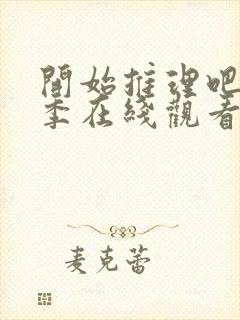 開始推理吧
季在綫觀看
麦克蕾